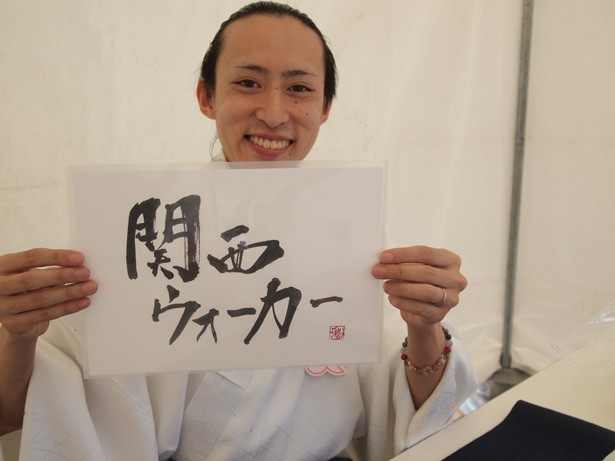 関西
ウォーカー